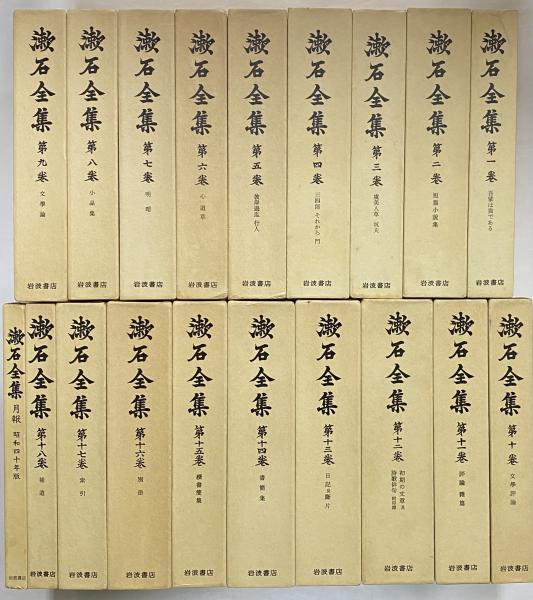 漱石全集 第一卷 吾輩は猫である
漱石全集 第二卷 短篇小說集 岩波書店
漱石全集 第三卷 虞美人草 坑夫 岩波書店
漱石全集 第四卷 三四郎 それから 門 岩波書店
漱石全集 第五卷 彼岸過迄 行人 岩波書店
漱石全集 第六卷 心 道草 岩波書店
漱石全集 第七卷 明暗 岩波書店
漱石全集 第八卷 小品集 岩波書店
漱石全集 第九卷 文學論 岩波書店
漱石全集 第十卷 文學評論 岩波書店
漱石全集 第十一卷 評論 雜篇 岩波書店
漱石全集 第十二卷 初期の文章及
詩歌俳句 附印譜 岩波書店
漱石全集 第十三卷 日記及斷片 岩波書店
漱石全集 第十四卷 書簡集 岩波書店
漱石全集 第十五卷 續書簡集 岩波書店
漱石全集 第十六卷 別册 岩波書店
漱石全集 第十七卷 索引 岩波書店
漱石全集 第十八卷 補遺 岩波書店
漱石全集 月報 昭和四十年版 岩波書店